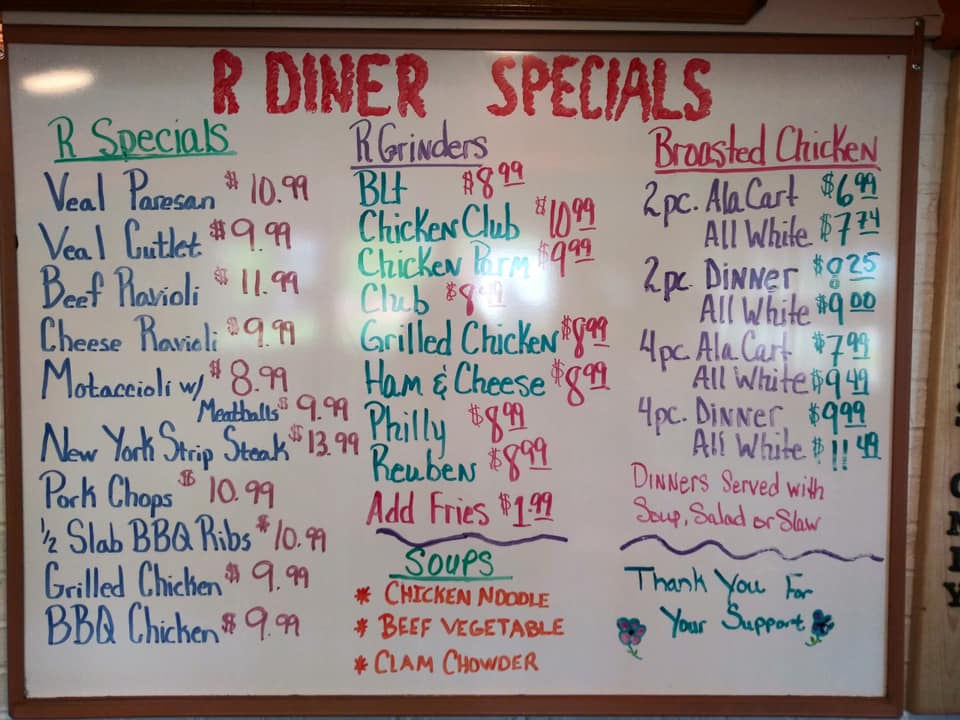 R DINER SPECIALS
R Specials
Veal Paresan $10.99
Veal Cutlet $9.99
Beef Ravioli $11.99
Cheese Ravioli $9.99
Motaccioli w/ $8.99
Meatballs $9.99
New York Strip Steak $13.99
Pork Chops $10.99
1/2 Slab BBQ Ribs $10.99
Grilled Chicken $9.99
BBQ Chicken $9.99
R Grinders
Blt $8.99
Chicken Club $10.99
Chicken Parm $9.99
Club $8.99
Grilled Chicken $8.99
Ham & Cheese $8.99
Philly $8.99
Reuben $8.99
Add Fries $1.99
SOUPS
* CHICKEN NOODLE
* BEEF VEGETABLE
* CLAM CHOWDER
Broasted Chicken
2pc. Ala Cart $6.99
All White $7.74
2pc. Dinner $8.25
All White $9.00
4pc. Ala Cart $7.99
All White $9.49
4pc. Dinner $9.99
All White $11.49
Dinners Served with
Soup, Salad or Slaw
Thank You For
Your Support